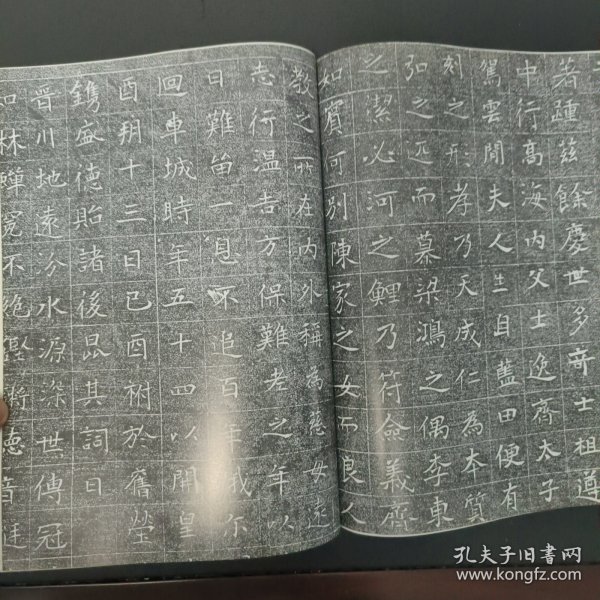 著踵茲餘慶世多奇士祖遵
中行高海内父士逸齊太子
駕雲閒夫人生自藍田便有
刻之形孝乃天成仁為本質
弘之迈而慕梁鴻之偶李東
之潔必河之鯉乃符僉義齊
如賓可别陳家之女而良人
教之所在内外稱為慈母
志行温吉方保難老之年以
日難留一息不追百年
迴車城時年五十四以開皇
酉朔十三日己酉祔於舊塋
鐫盛德貽諸後昆其詞曰
晉川地遠汾水源深世傳冠
如林蟬冕不絶徳音
孔夫子旧書网
www.kongfz.com